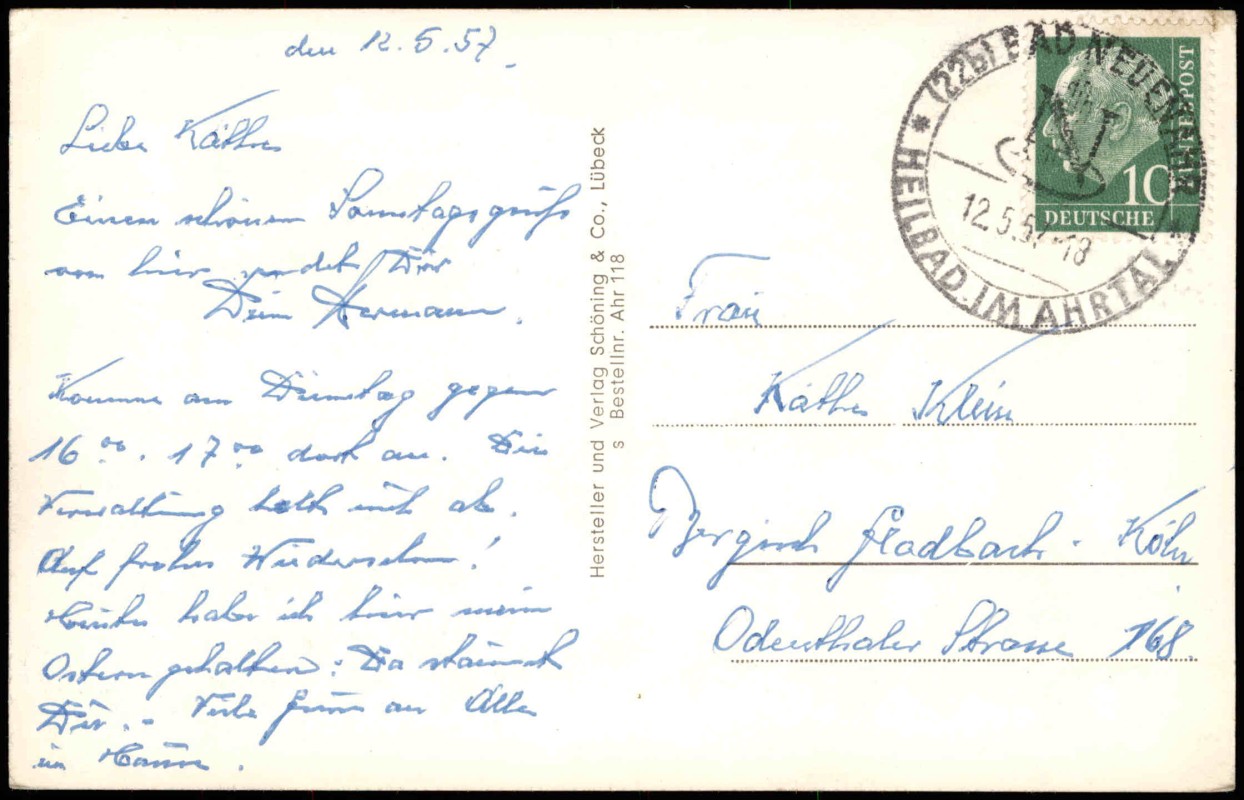 den 12.5.57.
Liebe Käthe
Einen schönen Sonntagsgruß
von hier sendet Dir
Dein Hermann.
Komme am Dienstag gegen
16⁰⁰. 17⁰⁰ dort an. Die
Verwaltung holt mich ab.
Auf frohes Wiedersehen!
Heute habe ich hier mein
Ostern gehalten. Da staunst
Du. - Viele Grüße an Alle
im Hause.
Hersteller und Verlag Schöning & Co., Lübeck
s Bestellnr. Ahr 118
(22b) BAD NEUENAHR
HEILBAD IM AHRTAL
12.5.57-18
10
DEUTSCHE
BUNDESPOST
Frau
Käthe Klein
Bergisch Gladbach - Köln
Odenthaler Strasse 168.